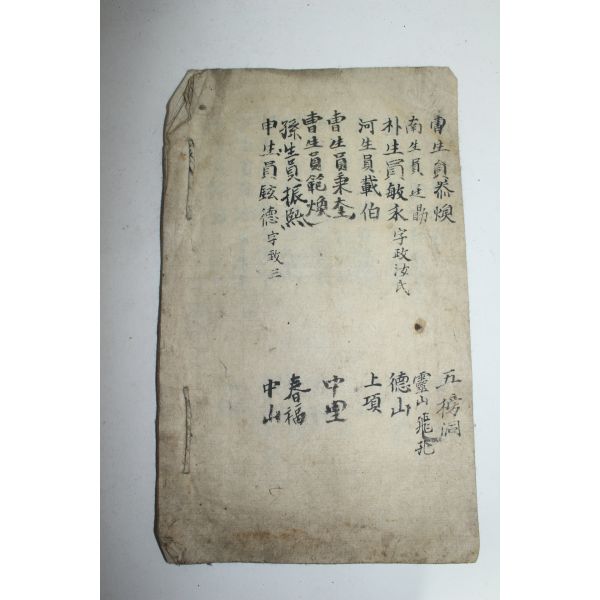 曺生員恭煥 五榜洞
南生員廷勛 靈山飛孔
朴生員敏永字政汝氏 德山
河生員載伯 上項
曺生員秉奎 中里
曺生員範煥
孫生員振熙 春福
申生員鉉德字致三 中山